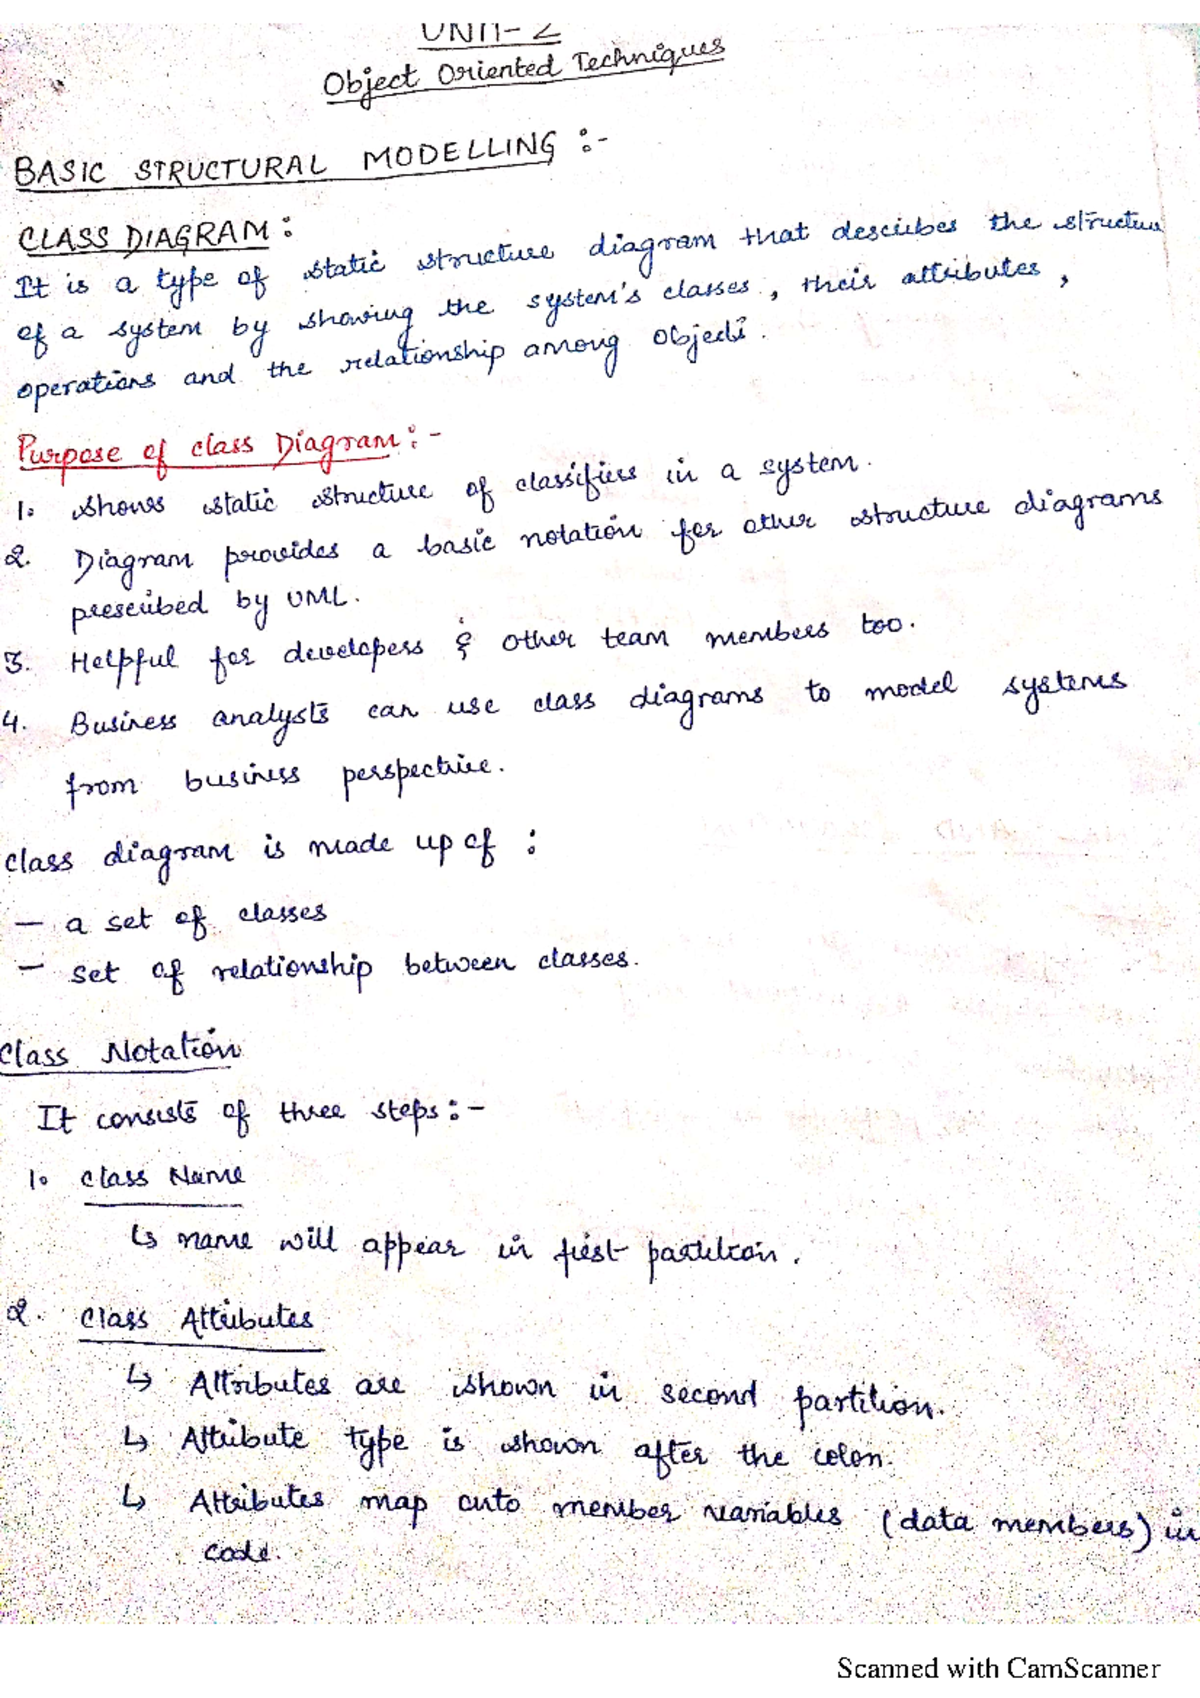 UNIT-2
Object Oriented Techniques
BASIC STRUCTURAL MODELLING :-
CLASS DIAGRAM :
It is a type of static structure diagram that describes the structure
of a system by showing the system's classes, their attributes,
operations and the relationship among objects.
Purpose of class Diagram :-
1. shows static structure of classifiers in a system.
2. Diagram provides a basic notation for other structure diagrams
prescribed by UML.
3. Helpful for developers & other team members too.
4. Business analysts can use class diagrams to model systems
from business perspective.
class diagram is made up of :
- a set of classes
- set of relationship between classes.
Class Notation
It consists of three steps :-
1. Class Name
↳ name will appear in first partition.
2. Class Attributes
↳ Attributes are shown in second partition.
↳ Attribute type is shown after the colon.
↳ Attributes map onto member variables (data members) in
code.
Scanned with CamScanner